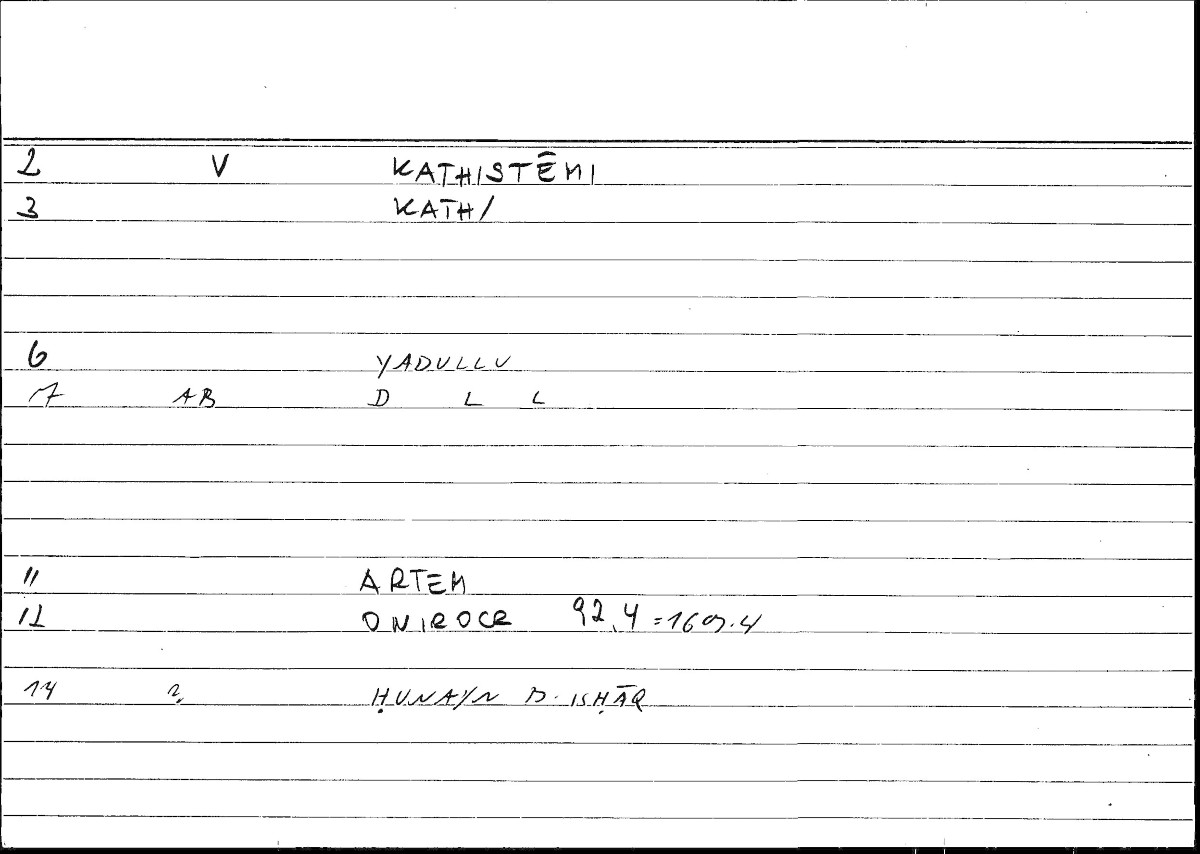 2 V KATHISTÊMI
3 KATH/
6 YADULLU
7 AB D L L
11 ARTEM
12 ONIROCR 92,4 =169.4
14 ? ḤUNAYN B. ISḤĀQ